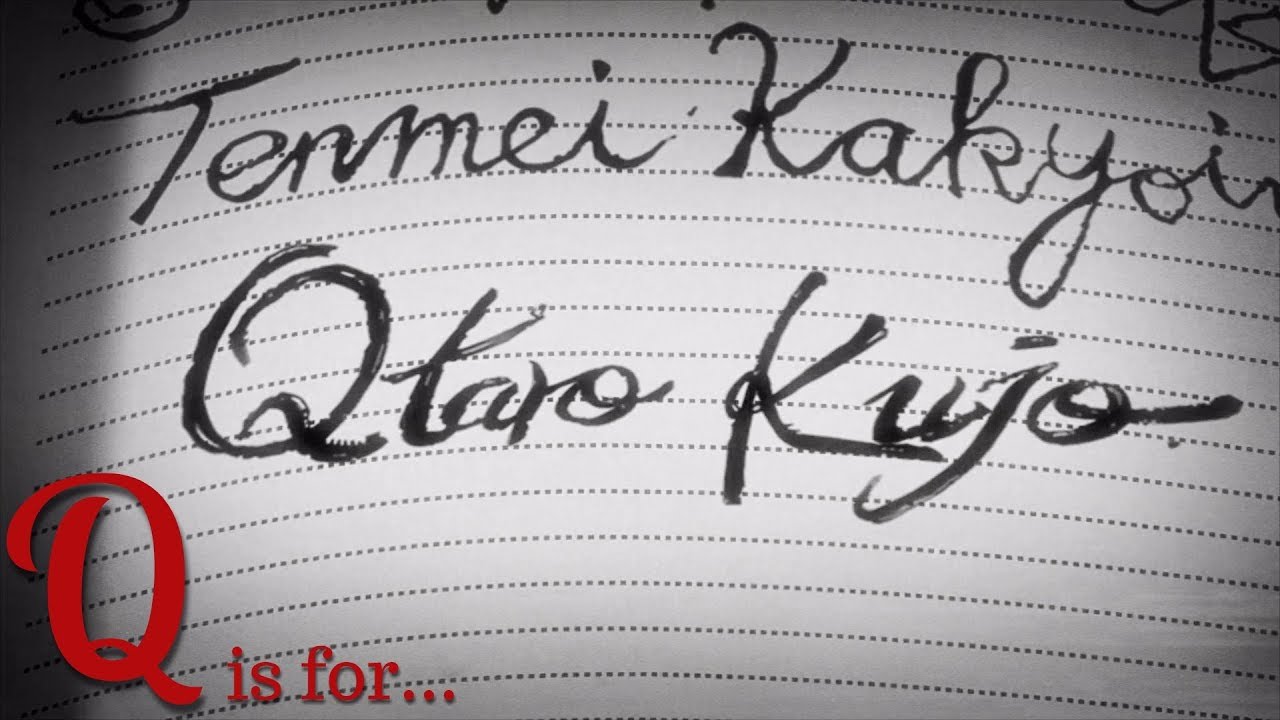 Tenmei Kakyoin
Qtaro Kujo
Q is for...